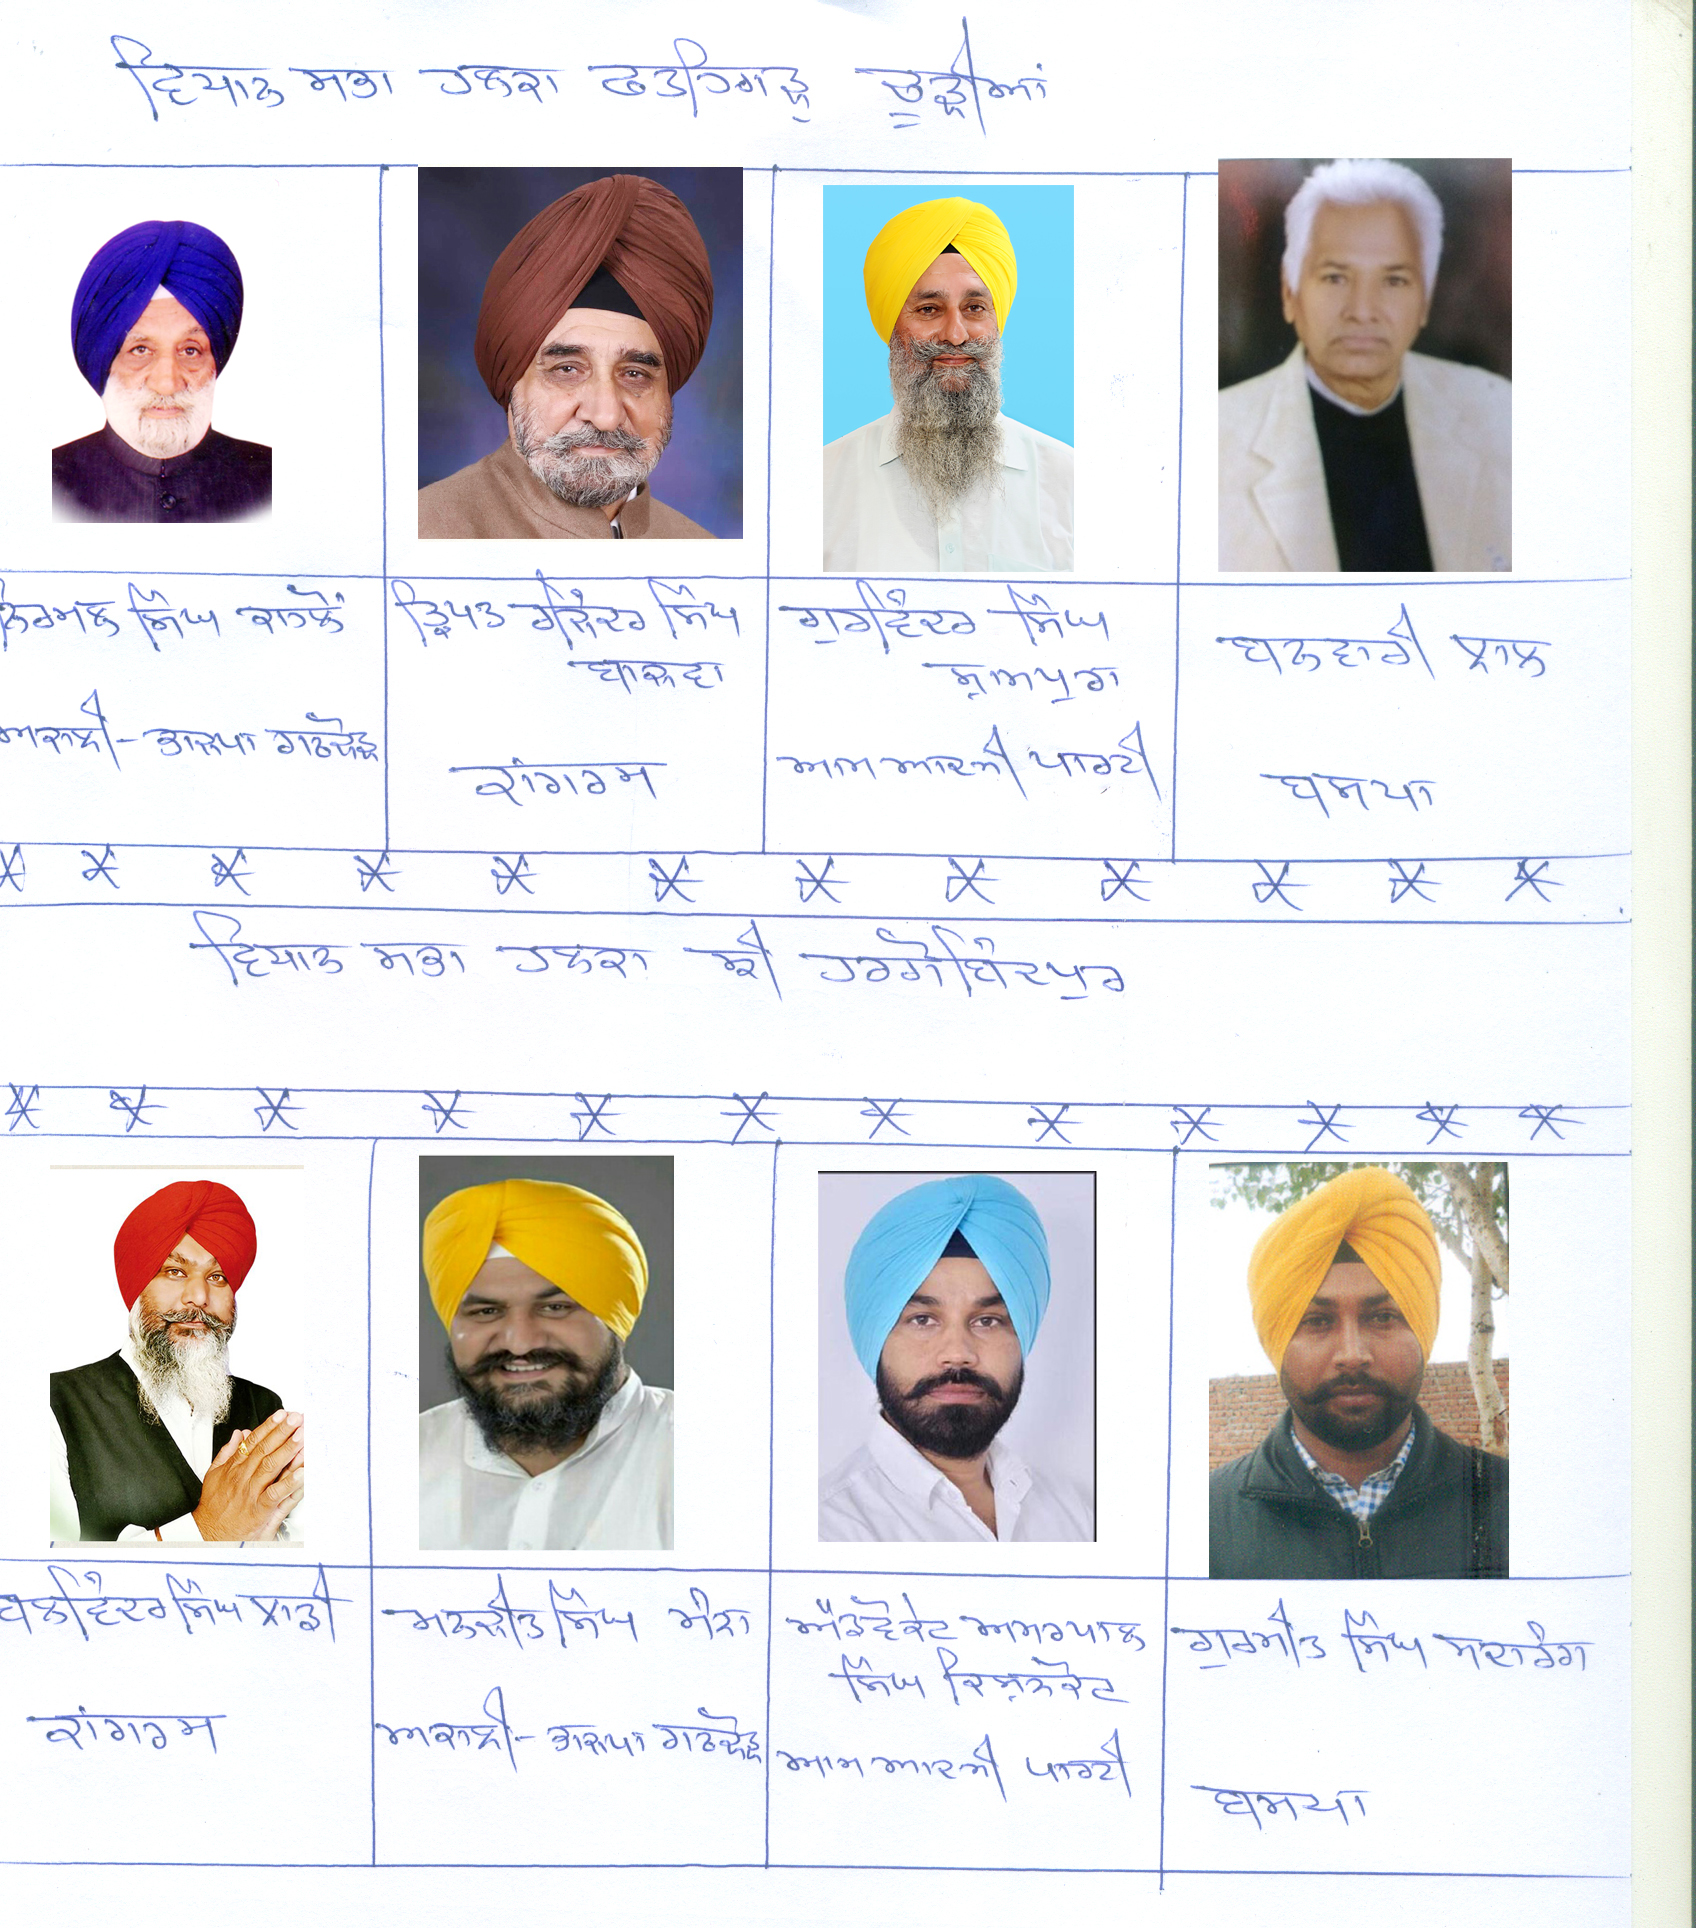 ਵਿਧਾਨ ਸਭਾ ਹਲਕਾ ਫਤਹਿਗੜ੍ਹ ਚੂੜੀਆਂ
ਨਿਰਮਲ ਸਿੰਘ ਕਾਹਲੋਂ
ਅਕਾਲੀ-ਭਾਜਪਾ ਗਠਜੋੜ
ਤ੍ਰਿਪਤ ਰਜਿੰਦਰ ਸਿੰਘ
ਬਾਜਵਾ
ਕਾਂਗਰਸ
ਗੁਰਵਿੰਦਰ ਸਿੰਘ
ਸ਼ਾਮਪੁਰਾ
ਆਮ ਆਦਮੀ ਪਾਰਟੀ
ਬਨਵਾਰੀ ਲਾਲ
ਬਸਪਾ
ਵਿਧਾਨ ਸਭਾ ਹਲਕਾ ਸ੍ਰੀ ਹਰਗੋਬਿੰਦਪੁਰ
ਬਲਵਿੰਦਰ ਸਿੰਘ ਲਾਡੀ
ਕਾਂਗਰਸ
ਮਨਜੀਤ ਸਿੰਘ ਮੰਨਾ
ਅਕਾਲੀ-ਭਾਜਪਾ ਗਠਜੋੜ
ਐਡਵੋਕੇਟ ਅਮਰਪਾਲ
ਸਿੰਘ ਕਿਸ਼ਨਕੋਟ
ਆਮ ਆਦਮੀ ਪਾਰਟੀ
ਗੁਰਮੀਤ ਸਿੰਘ ਸਦਾਰੰਗ
ਬਸਪਾ